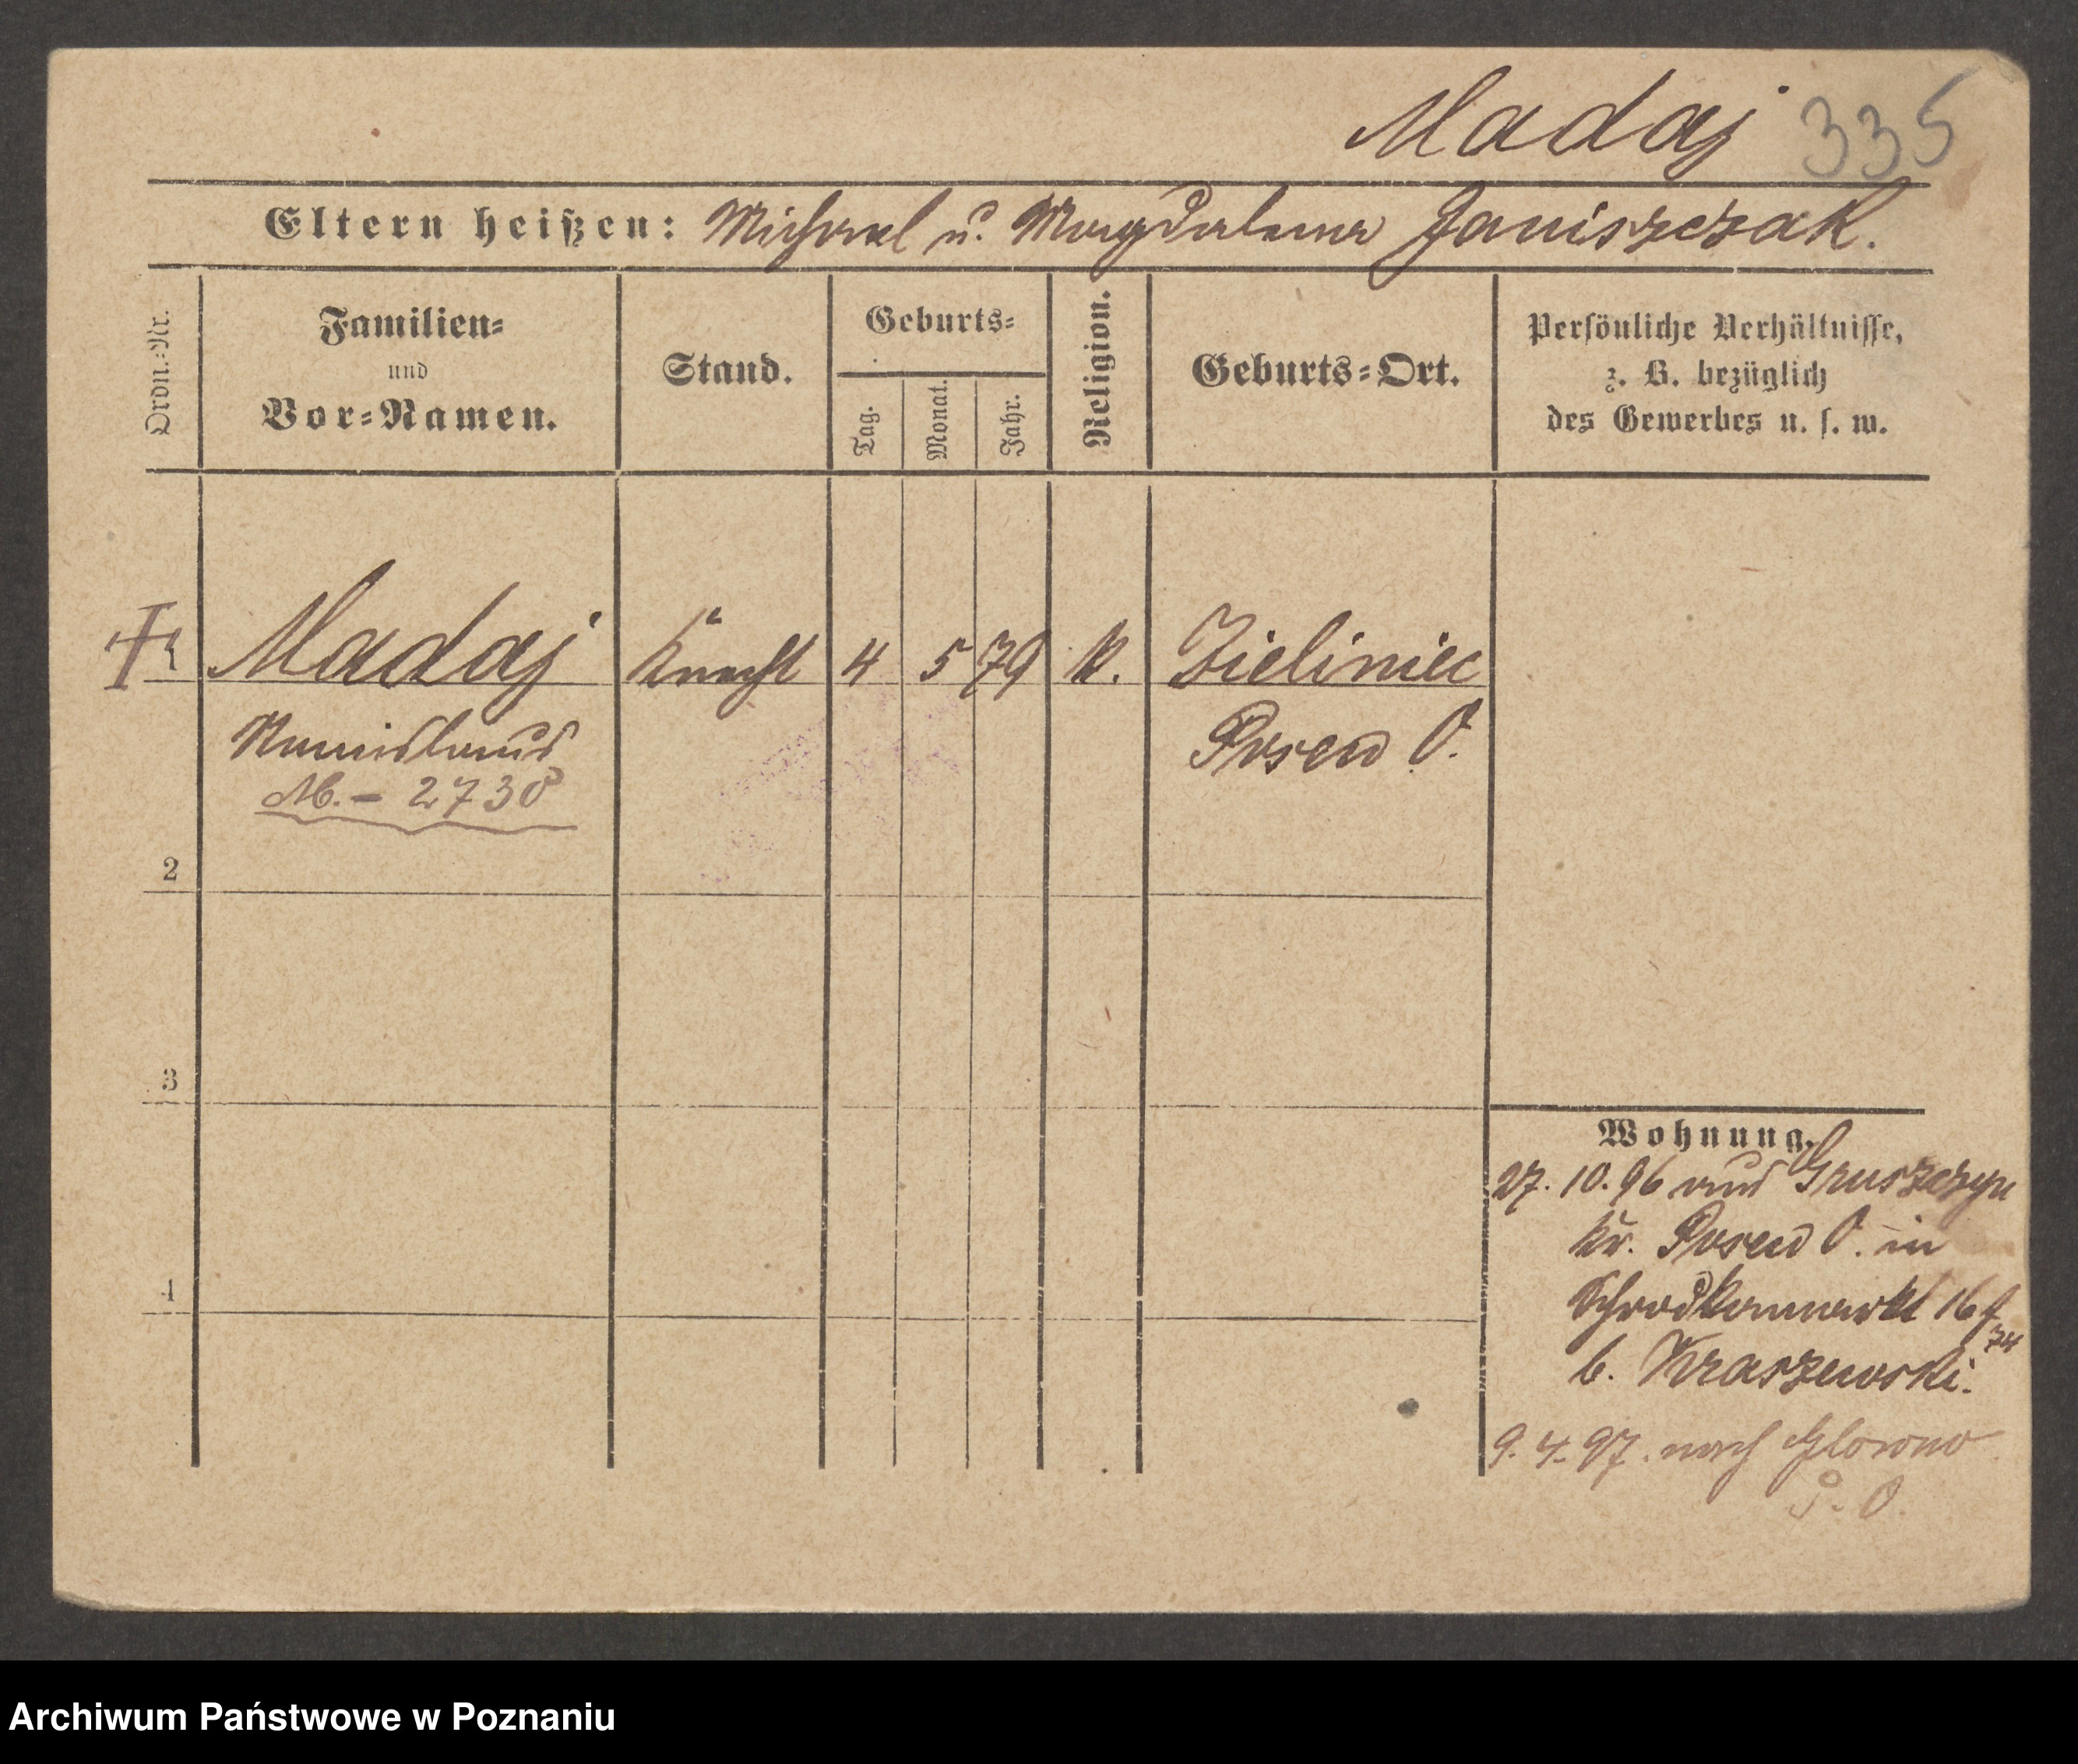 Madaj 335
Eltern heißen: Michael u. Magdalena Janiszczak.
Ordn.=Nr.
Familien=
und
Vor=Namen.
Stand.
Geburts=
Tag.
Monat.
Jahr.
Religion.
Geburts=Ort.
Persönliche Verhältnisse,
z. B. bezüglich
des Gewerbes u. s. w.
1 Madaj Knecht 4 5 79 K. Zieliniec
Stanislaus Posen O.
M. - 2738
2
3
4
Wohnung.
27. 10. 96 aus Gruszczyn
Kr. Posen O. in
Schrodkamarkt 16
b. Kraszewski.
9. 4. 97. nach Glowno
P. O.
Archiwum Państwowe w Poznaniu